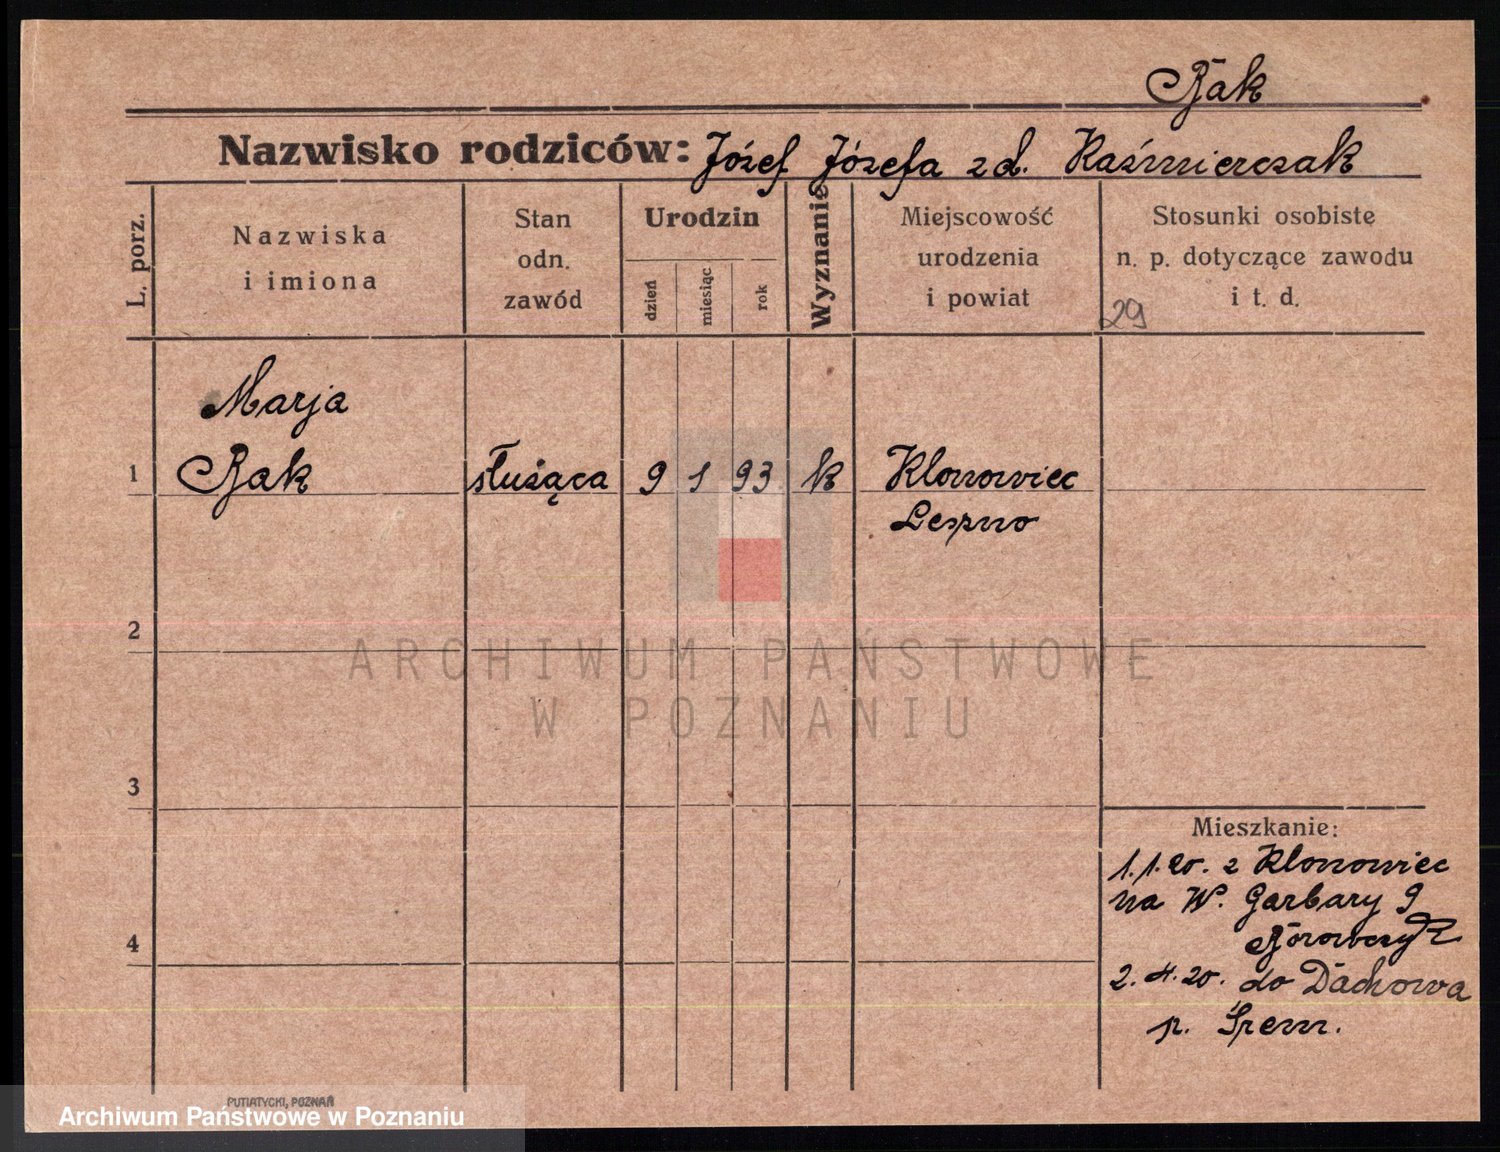 Bąk
Nazwisko rodziców: Józef Józefa zd. Kaźmierczak
L. porz.
Nazwiska
i imiona
Stan
odn.
zawód
Urodzin
dzień
miesiąc
rok
Wyznanie
Miejscowość
urodzenia
i powiat
Stosunki osobiste
n. p. dotyczące zawodu
i t. d.
29
Marja
1 Bąk służąca 9 1 93 k Klonowiec
Leszno
2
ARCHIWUM PAŃSTWOWE
W POZNANIU
3
Mieszkanie:
1.1.20. z Klonowiec
na W. Garbary 9
Borowczyk
4
2.4.20. do Dachowa
p. Śrem.
PUTIATYCKI, POZNAŃ
Archiwum Państwowe w Poznaniu